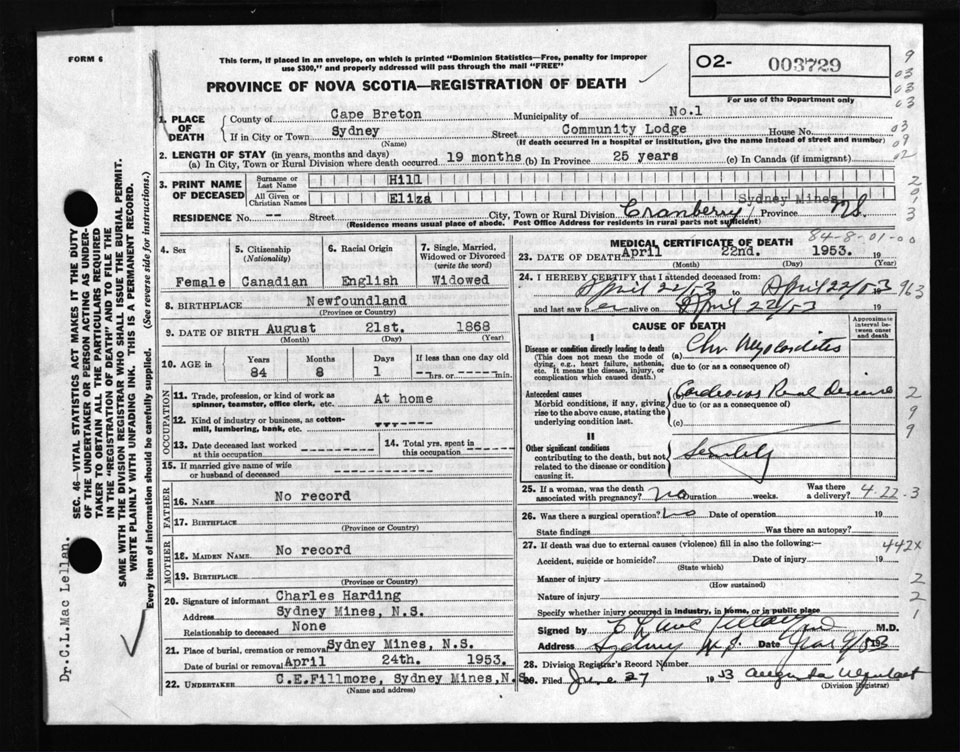 FORM 6
This form, if placed in an envelope, on which is printed "Dominion Statistics—Free, penalty for improper
use $300," and properly addressed will pass through the mail "FREE"
PROVINCE OF NOVA SCOTIA—REGISTRATION OF DEATH
02- 003729
For use of the Department only
9
03
03
03
03
09
02
2
0
1
3
1. PLACE OF DEATH
County of Cape Breton Municipality of No.1
If in City or Town Sydney Street Community Lodge House No.
(Name) (If death occurred in a hospital or institution, give the name instead of street and number)
2. LENGTH OF STAY (in years, months and days)
(a) In City, Town or Rural Division where death occurred 19 months (b) In Province 25 years (c) In Canada (if immigrant)
3. PRINT NAME OF DECEASED
Surname or Last Name Hill
All Given or Christian Names Eliza
Sydney Mines
RESIDENCE No. -- Street City, Town or Rural Division Cranberry Province N.S.
(Residence means usual place of abode. Post Office Address for residents in rural parts not sufficient)
4. Sex Female
5. Citizenship (Nationality) Canadian
6. Racial Origin English
7. Single, Married, Widowed or Divorced (write the word) Widowed
8. BIRTHPLACE Newfoundland
(Province or Country)
9. DATE OF BIRTH August 21st. 1868
(Month) (Day) (Year)
10. AGE in Years 84 Months 8 Days 1 If less than one day old
---hrs. or ------min.
OCCUPATION
11. Trade, profession, or kind of work as spinner, teamster, office clerk, etc. At home
12. Kind of industry or business, as cotton-mill, lumbering, bank, etc.
13. Date deceased last worked at this occupation
14. Total yrs. spent in this occupation
15. If married give name of wife or husband of deceased
FATHER
16. NAME No record
17. BIRTHPLACE
(Province or Country)
MOTHER
18. MAIDEN NAME No record
19. BIRTHPLACE
(Province or Country)
20. Signature of informant Charles Harding
Address Sydney Mines, N.S.
Relationship to deceased None
21. Place of burial, cremation or removal Sydney Mines, N.S.
Date of burial or removal April 24th. 1953.
22. UNDERTAKER C.E.Fillmore, Sydney Mines,N.S.
(Name and address)
MEDICAL CERTIFICATE OF DEATH
84-8-01-00
23. DATE OF DEATH April 22nd. 1953. 19
(Month) (Day) (Year)
24. I HEREBY CERTIFY that I attended deceased from
April 22/53 to April 22/53 963
and last saw h er alive on April 22/53
CAUSE OF DEATH
Approximate interval between onset and death
I
Disease or condition directly leading to death
(This does not mean the mode of dying, e.g., heart failure, asthenia, etc. It means the disease, injury, or complication which caused death.)
(a) Chr Myocarditis
due to (or as a consequence of)
Antecedent causes
Morbid conditions, if any, giving rise to the above cause, stating the underlying condition last.
Renal Disease
due to (or as a consequence of)
(c)
2
9
9
II
Other significant conditions
contributing to the death, but not related to the disease or condition causing it.
Senility
25. If a woman, was the death associated with pregnancy? no Duration weeks. Was there a delivery? 4-22-3
26. Was there a surgical operation? No Date of operation 19
State findings Was there an autopsy?
27. If death was due to external causes (violence) fill in also the following:— 442X
Accident, suicide or homicide? Date of injury 19
(State which)
Manner of injury
(How sustained)
Nature of injury
Specify whether injury occurred in industry, in home, or in public place
2
2
1
Signed by M.D.
Address Sydney N.S. Date 19
28. Division Registrar's Record Number
29. Filed June 27 1953
(Division Registrar)
SEC. 46—VITAL STATISTICS ACT MAKES IT THE DUTY
OF THE UNDERTAKER OR PERSON ACTING AS UNDER-
TAKER TO OBTAIN ALL THE PARTICULARS REQUIRED
IN THE "REGISTRATION OF DEATH" AND TO FILE THE
SAME WITH THE DIVISION REGISTRAR WHO SHALL ISSUE THE BURIAL PERMIT.
WRITE PLAINLY WITH UNFADING INK. THIS IS A PERMANENT RECORD.
Every item of information should be carefully supplied. (See reverse side for instructions.)
Dr.C.L.Mac Lellan.